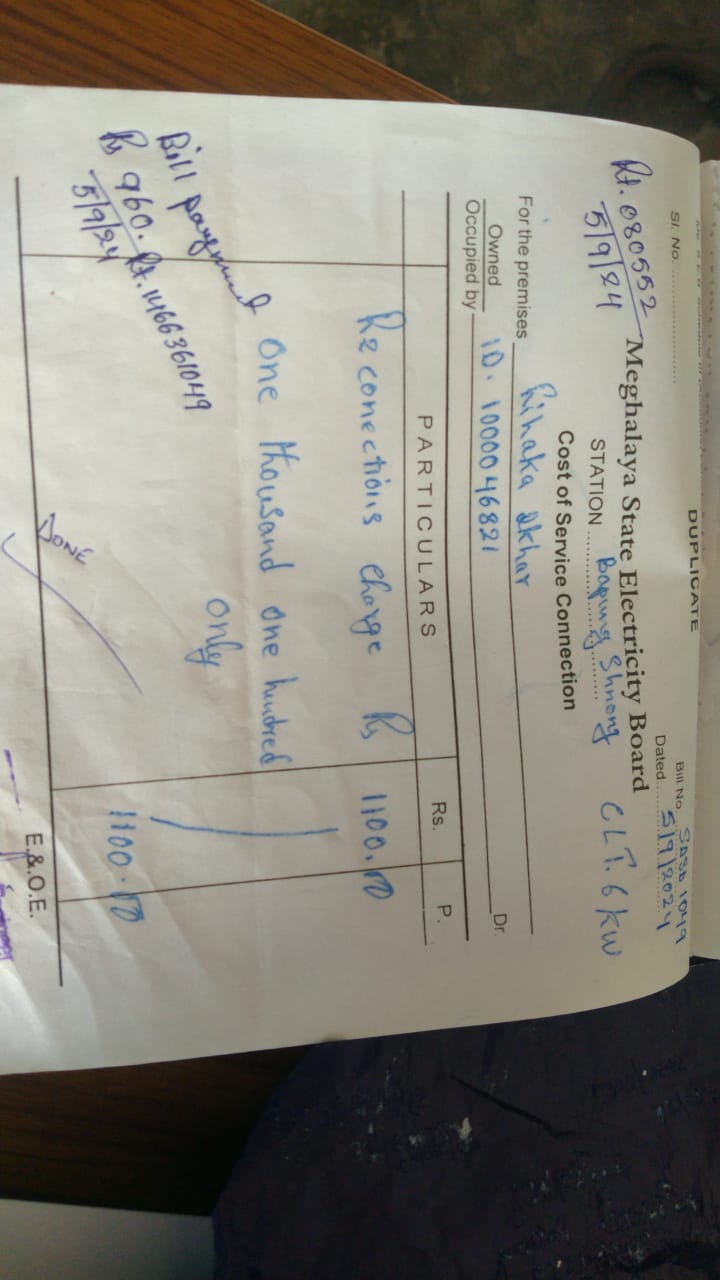 DUPLICATE
Sl. No. ....................
Bill No. SDSD 1049
Dated 5/9/2024
Rt. 080552
5/9/24
Meghalaya State Electricity Board
STATION Bapung Shnong CLT. 6 KW
Cost of Service Connection
For the premises Rihaka Dkhar
Owned
Occupied by ID. 1000046821 Dr.
PARTICULARS Rs. P.
Reconections charge Rs 1100.00
One thousand one hundred
only
Bill payment
Rs 960. Rt. 1466361049
5/9/24
1100.00
DONE
E.&.O.E.